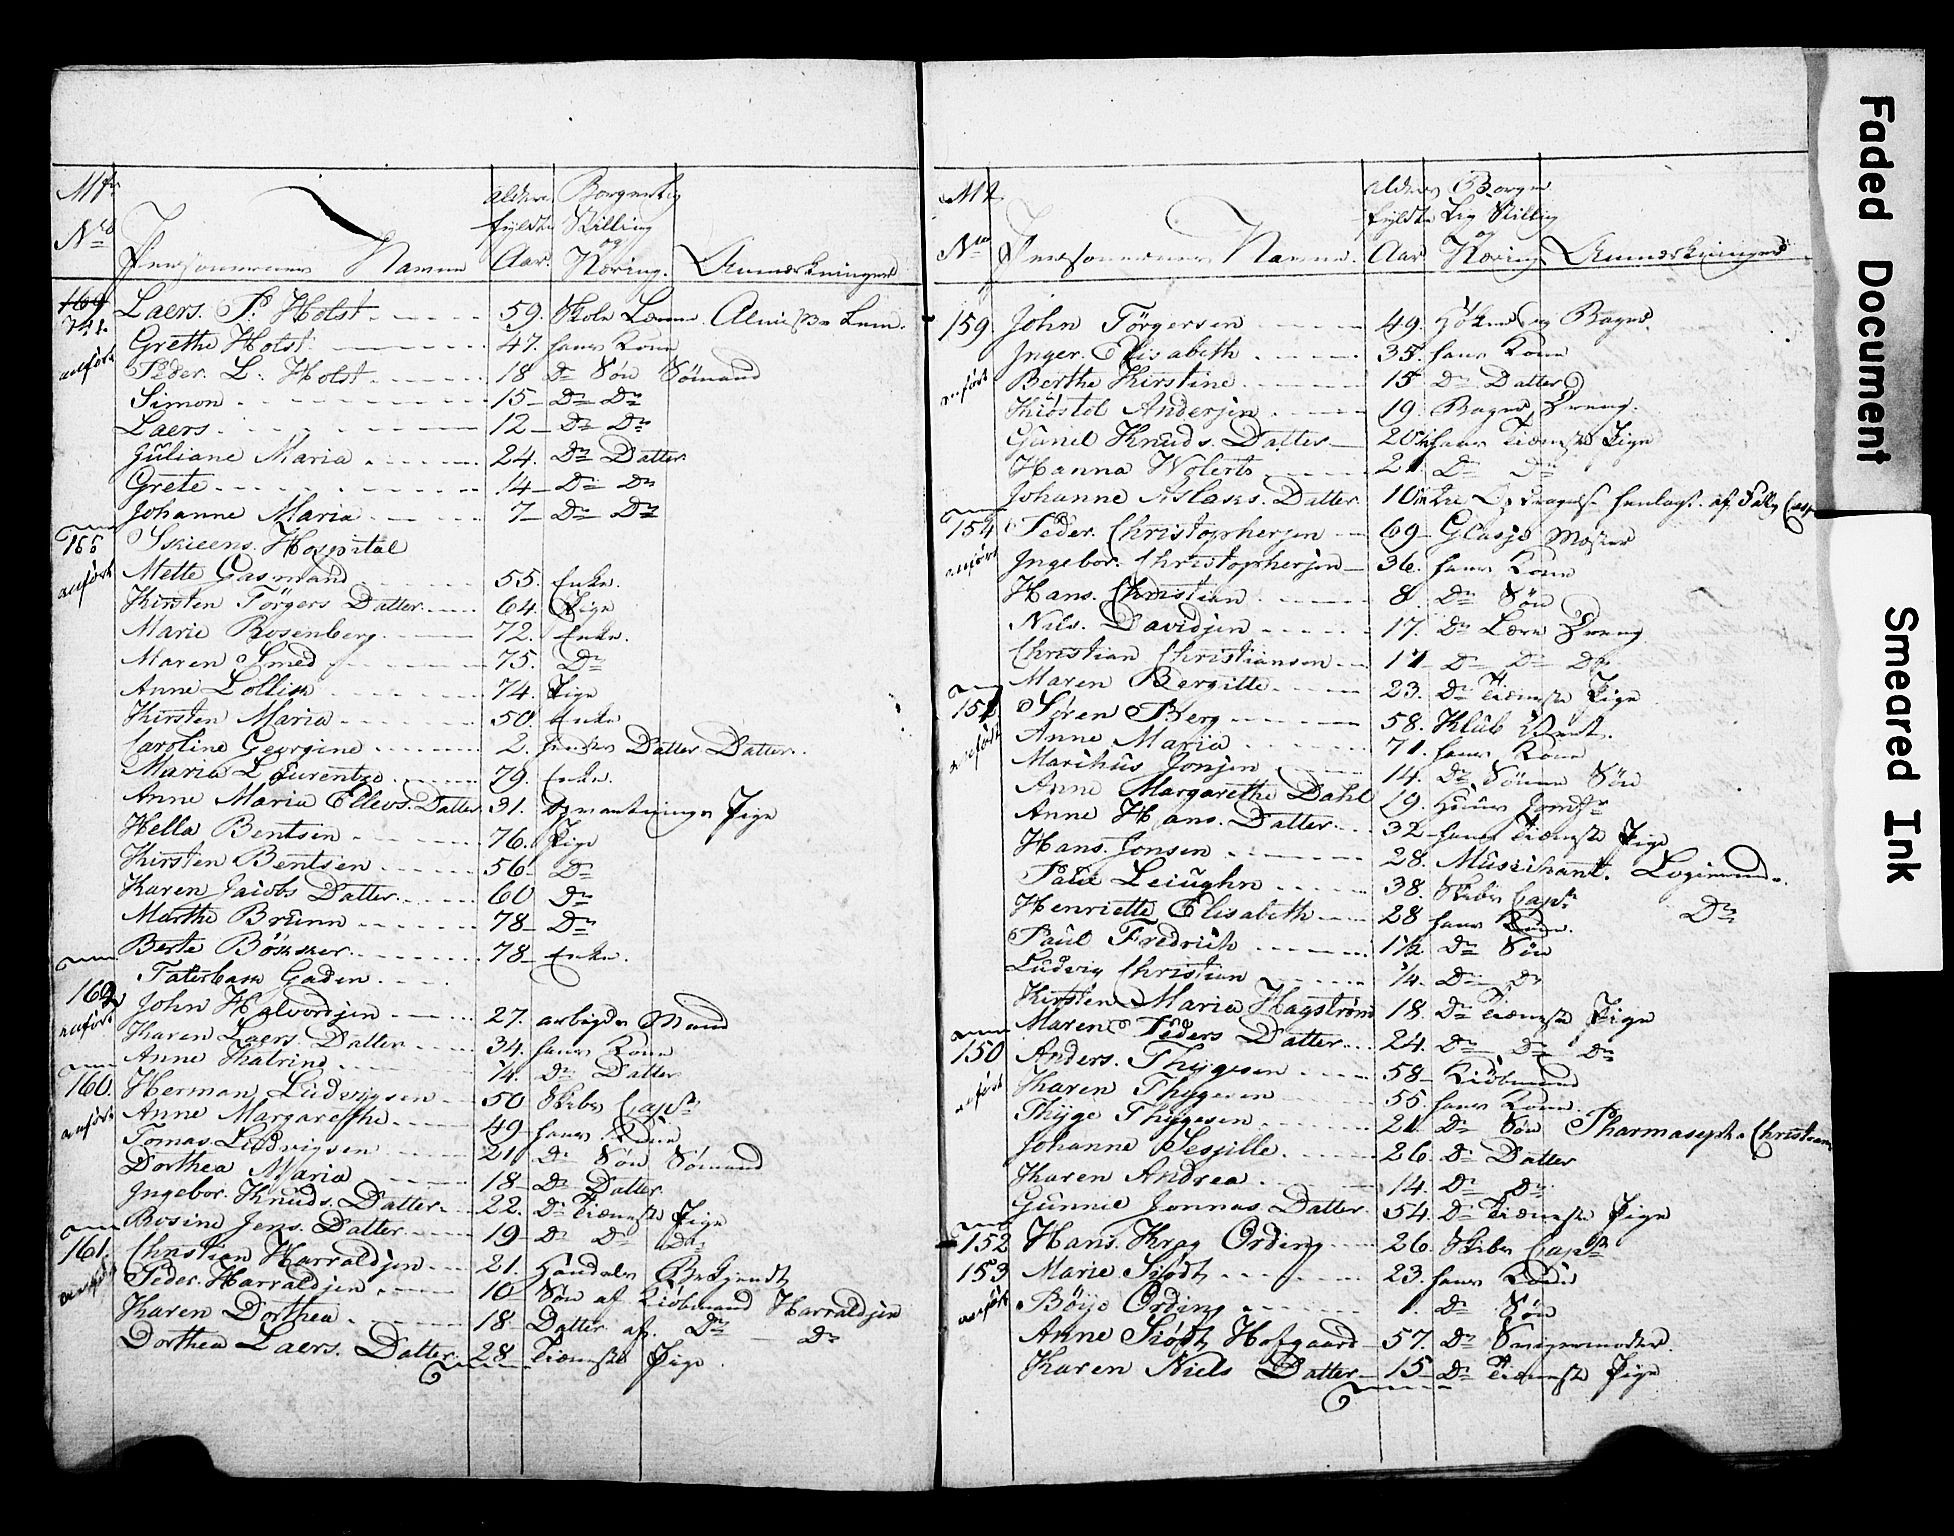 Mtr No Personernes Nafne Alder fyldte Aar. Borgerlig Stilling og Næring. Anmærkninger
Laers. P. Holst 59. Skole Lærer
Grethe Holst 47. hans Kone
anført Peder. L. Holst 18 Dn Søn Sømand
Simon 15 Dn Dn
Laers. 12 Dn Dn
Juliane Maria 24. Dn Datter
Grete 14 Dn Dn
Johanne Maria 7 Dn Dn
165 Skieens Hospital
anført Mette Gasmand 55. Enke.
Kirsten Törgers Datter 64. Pige
Marie Rosenberg 72. Enke.
Maren Smed 75. Dn
Anne Lollik 74. Pige
Kirsten Maria 50. Enke
Caroline Georgine 2. hendes Datter Datter.
Maria Laurentze 79. Enke.
Anne Maria Ellevs. Datter 31. Opvartnings Pige
Hella Bentsen 76. Pige
Kirsten Bentsen 56 Dn
Karen Jacobs Datter 60 Dn
Marthe Brunn 78 Dn
Berte Böskker 78 Enke.
Faterbask Gaden
162 John Halvorsen 27. arbejds Mand
anført Karen Laers Datter 34. hans Kone
Anne Katrine Dn Datter
160. Herman Ludvigsen 50 Skibs Capt.
Anne Margarethe 49 hans Kone
anført Tomas Ludvigsen 21 Dn Søn Sømand
Dorthea Maria 18 Dn Datter
Ingebor. Knuds. Datter 22. Dn Tieneste Pige
Rosine Jens. Datter 19 Dn Dn Dn
161. Christian Harraldsen 21. Handels Betjendt
Peder. Harraldsen 10 Søn af Kiøbmand Harraldsen
Karen Dorthea 18 Datter af Dn Dn
Dorthea Laers. Datter 28 Tieneste Pige
Mt No Personernes Nafne. Alder fyldte Aar Borgerlig Stilling og Næring Anmærkninger
159. John Törgersen 49. Høker og Bager
Inger. Elisabeth 35. hans Kone
anført Berthe Kirstine 15 Dn Datter
Kiöstol Andersen 19. Bager Dreng.
Gunil Knuds. Datter 20 hans Tieneste Pige
Hanna Wolerts Dn Dn
Johanne Aslaks. Datter 10
154 Peder. Christophersen 69 Glasse Mester
anført Ingebor. Christophersen 36. hans Kone
Hans. Christian 8 Dn Søn
Nils. Davidsen 17. Dn Lære Dreng
Christian Christiansen 17 Dn Dn Dn
Maren Bergitte 23. Dn Tieneste Pige
151 Sören Berg 58. Klub Vert.
anført Anne Maria 71. hans Kone
Marihus Jonsen 14. Dn Sønne Søn
Anne Margarethe Dahl 19. Huus Jomfr
Anne Hans. Datter 32 hans Tieneste Pige
Hans. Jonsen 28. Musikant. Logerende.
Paul Leiughn 38. Skibs Capt. Dn
Henriette Elisabeth 28 hans Kone.
Paul Fredrich 1½ Dn Søn
Ludvig Christian ¼. Dn Dn
Kirsten Maria Hagström 18. Dn Tieneste Pige
Maren Peders Datter 24. Dn Dn Dn
150 Anders. Thygesen 58 Kiøbmand
anført Karen Thygesen 55. hans Kone.
Thyge Thygesen 21. Dn Søn Pharmasept. Christian
Johanne Sesille 26. Dn Datter
Karen Andrea 14. Dn Dn
Gunnil Jonnas. Datter 54. Dn Tieneste Pige
152 Hans. Krag Ording 26. Skibs Capt.
153 Marie Siödt 23. hans Kone
anført Böye Ording Dn Søn
Anne Siödt Hofgaard 57. Dn Svigermoder.
Karen Niels Datter 15 Dn Tieneste Pige
Faded Document
Smeared Ink